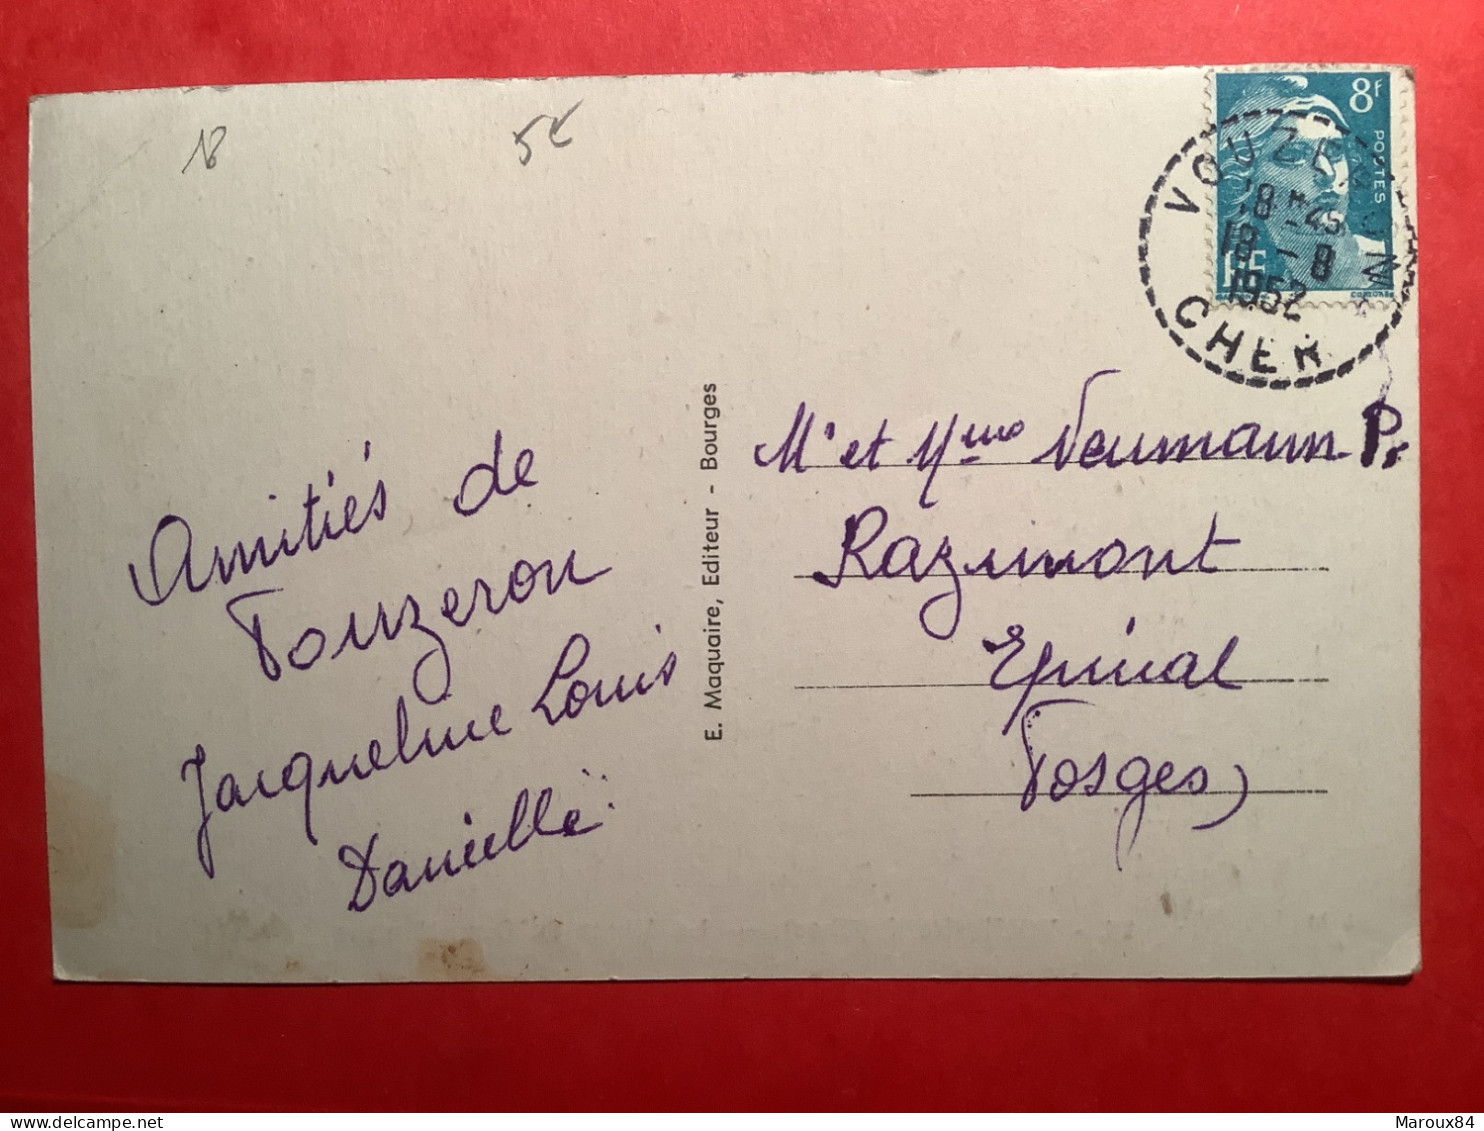 18
5€
8F
POSTES
RF
VOUZERON
18H45
18 - 8
1952
CHER
Amitiés de
Vouzeron
Jacqueline Louis
Danielle
E. Maquaire, Editeur - Bourges
Mr et Mme Neumann Pr
Razimont
Epinal
Vosges
Maroux84